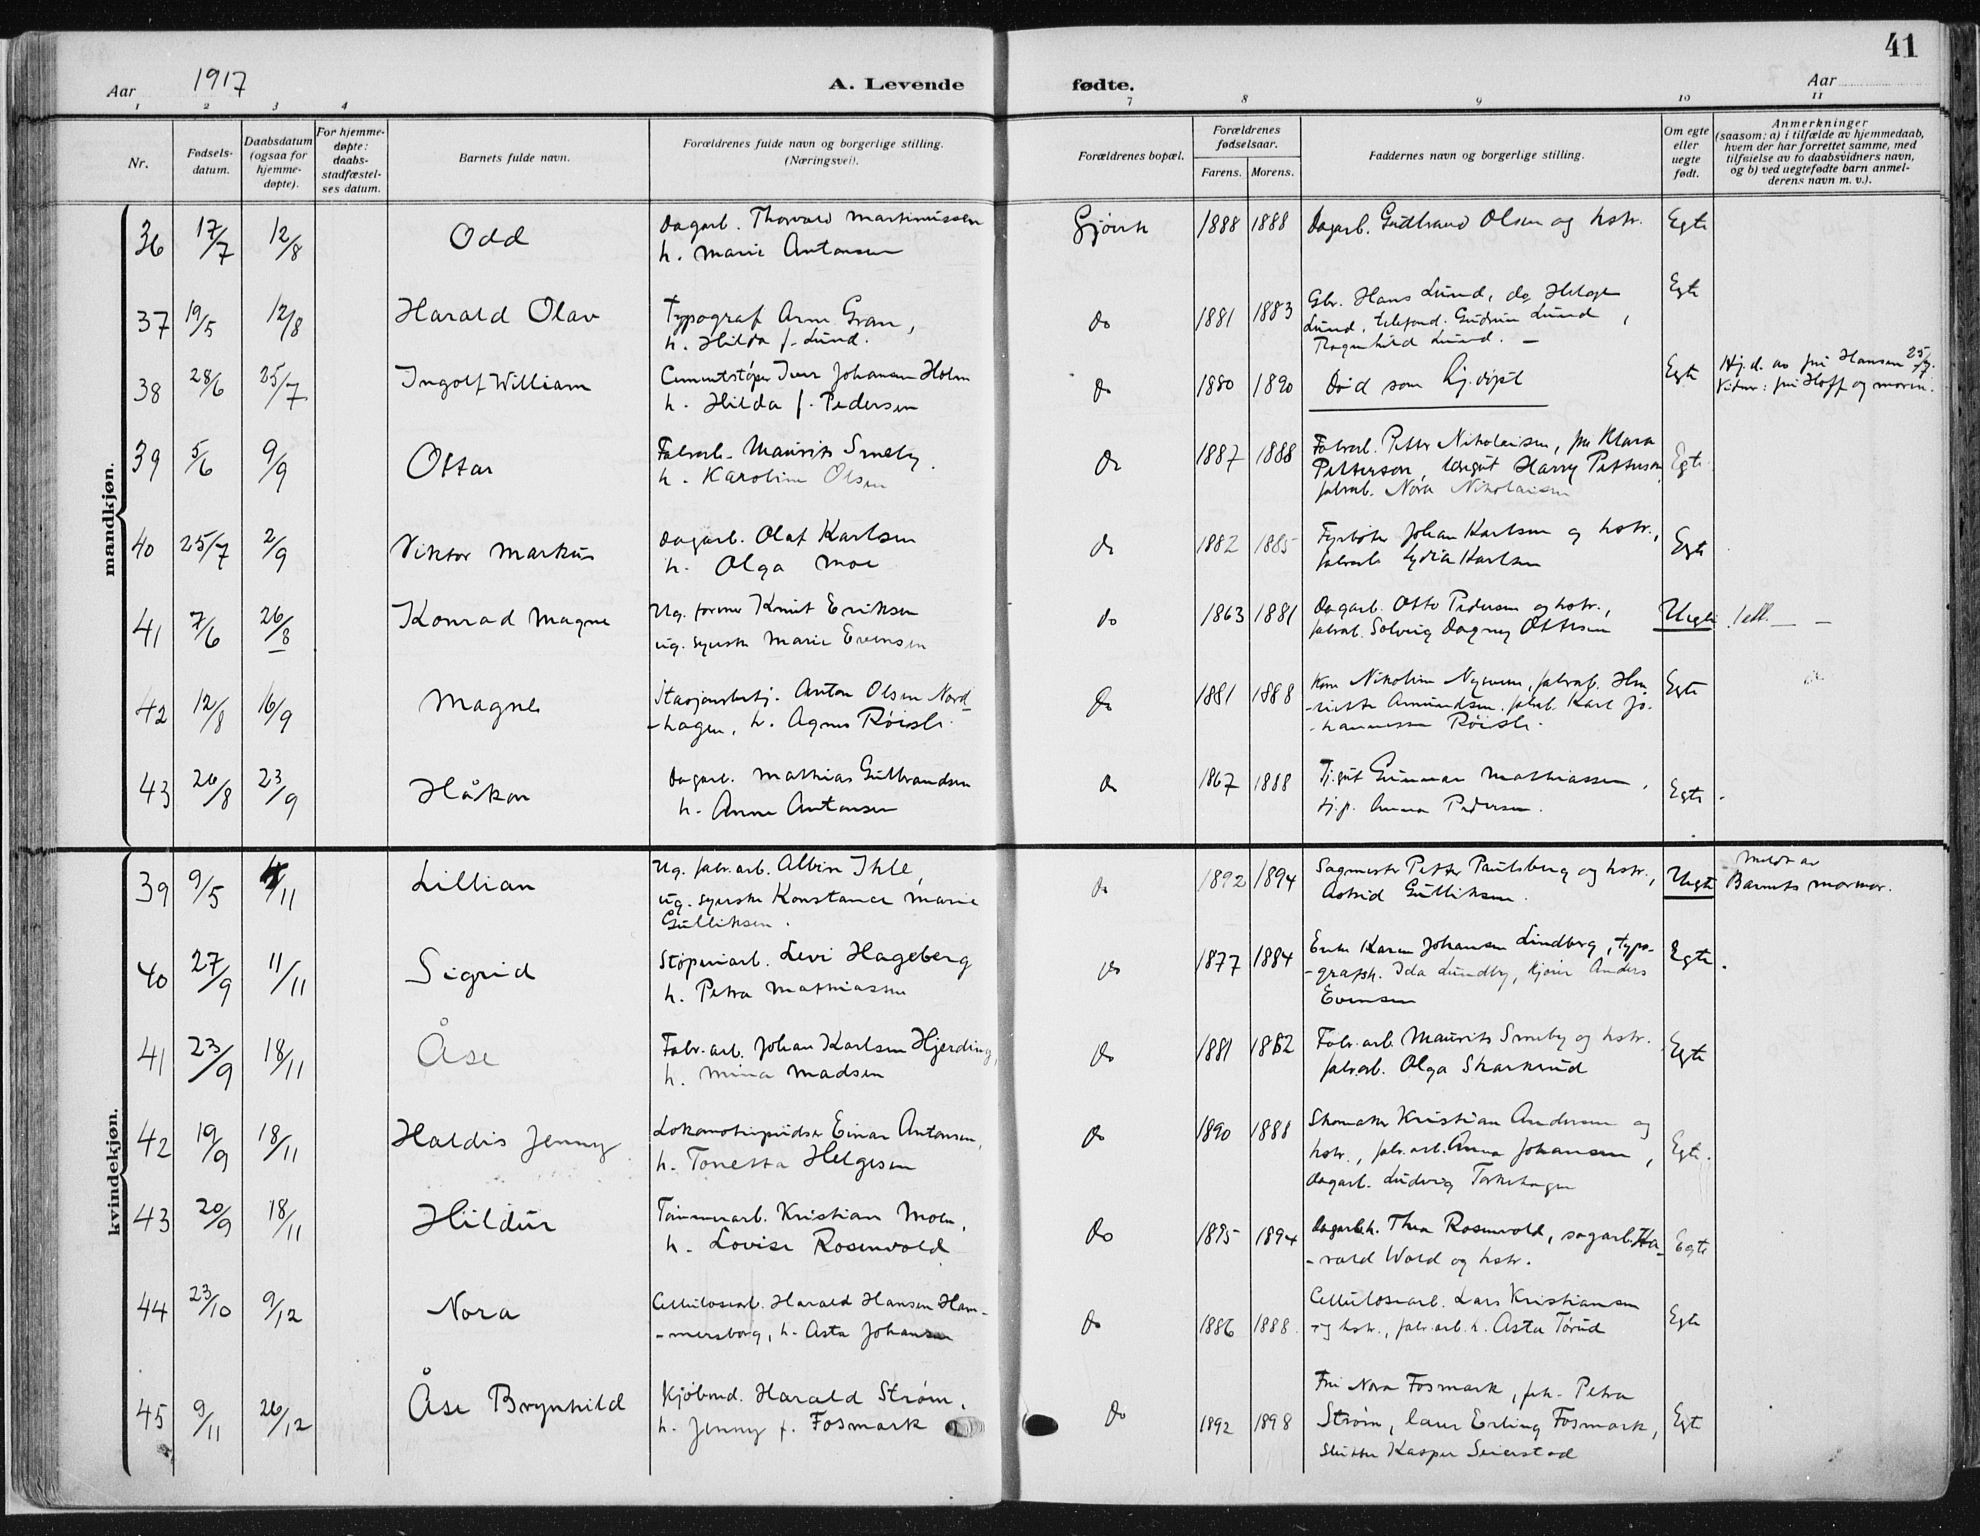 41
Aar 1917
A. Levende fødte.
Aar
1 2 3 4 7 8 9 10 11
Nr.
Fødsels-
datum.
Daabsdatum
(ogsaa for
hjemme-
døpte).
For hjemme-
døpte:
daabs-
stadfæstel-
ses datum.
Barnets fulde navn.
Forældrenes fulde navn og borgerlige stilling.
(Næringsvei).
Forældrenes bopæl.
Forældrenes
fødselsaar.
Farens. Morens.
Faddernes navn og borgerlige stilling.
Om egte
eller
uegte
født.
Anmerkninger
(saasom: a) i tilfælde av hjemmedaab,
hvem der har forrettet samme, med
tilføielse av to daabsvidners navn,
og b) ved uegtefødte barn anmel-
derens navn m. v.).
mandkjøn.
36 17/7 12/8 Odd
Dagarb. Thorvald Martinussen
h. Marie Antonsen
Gjøvik 1888 1888
Dagarb. Gudbrand Olsen og hstr.
Egte
37 19/5 12/8 Harald Olav
Typograf Arne Gran,
h. Hilda f. Lund.
do 1881 1883
Gbr. Hans Lund, do Helge
Lund, telefond. Gudrun Lund,
Ragnhild Lund. —
Egte
38 28/6 25/7 Ingolf William
Cementstøper Iver Johansen Holm
h. Hilda f. Pedersen
do 1880 1890
Død som hj.døpt
Egte
Hj.d. av fru Hansen 25/7.
Vidner: fru Hoff og moren.
39 5/6 9/9 Ottar
Fabrarb. Maurits Smeby.
h. Karoline Olsen
do 1887 1888
Fabrarb. Petter Nikolaisen, fru Klara
Petterson, Harry Petterson,
fabrab. Nora Nikolaisen
Egte
40 25/7 2/9 Viktor Markus
Dagarb. Olaf Karlsen
h. Olga Moe
do 1882 1885
Fyrbøter Johan Karlsen og hstr.,
fabrarb Lydia Karlsen
Egte
41 7/6 26/8 Konrad Magne
Ug. former Knut Eriksen
ug. syerske Marie Evensen
do 1863 1881
Dagarb. Otto Pedersen og hstr.,
fabrab. Solveig Dagny Ottesen
Uegte
42 12/8 16/9 Magne
Stasjonsbetj. Anton Olsen Nord-
-hagen, h. Agnes Røisli.
do 1881 1888
Kone Nikoline Nyveen, fabrab. Hen-
-riette Amundsen, fabrab. Karl Jo-
-hannessen Røisli.
Egte
43 26/8 23/9 Håkon
Dagarb. Mathias Gulbrandsen
h. Anne Antonsen
do 1867 1888
Tj.gut Gunnar Mathiassen,
tj.p. Anna Pedersen.
Egte.
kvindekjøn.
39 9/5 /11 Lillian
Ug. fabr.arb. Albin Ihle,
ug. syerske Konstance Marie
Gulliksen.
do 1892 1894
Sagmester Petter Paulsberg og hstr.,
Astrid Gulliksen.
Uegte
Meldt av
Barnets mormor.
40 27/9 11/11 Sigrid
Støperiarb. Levi Hageberg
h. Petra Mathiassen
do 1877 1884
Enke Karen Johansen Lindberg, typo-
-grafsk. Ida Lundby, kjører Anders
Evensen
Egte.
41 23/9 18/11 Åse
Fabr.arb. Johan Karlsen Hjerding,
h. Mina Madsen
do 1881 1882
Fabr.arb. Maurits Smeby og hstr.
fabr.arb. Olga Skarkrud
Egte
42 19/9 18/11 Haldis Jenny
Lokomotivpudser Einar Antonsen,
h. Tonetta Helgesen
do 1890 1888
Skomaker Kristian Andersen og
hstr., fabr.arb. Anna Johansen,
dagarb. Ludvig Torkehagen
Egte.
43 20/9 18/11 Hildur
Tømmerarb. Kristian Moen,
h. Lovise Rosenvold
do 1895 1894
Dagarb.h. Thea Rosenvold, sagarb. Ha-
-rald Wold og hstr.
Egte
44 23/10 9/12 Nora
Cellulosearb. Harald Hansen Ham-
-mersborg, h. Asta Johansen
do 1886 1888
Cellulosearb. Lars Kristiansen
og hstr., fabr.arb.h. Asta Tørud
Egte
45 9/11 26/12 Åse Brynhild
Kjøbmd. Harald Strøm,
h. Jenny f. Fosmark
do 1892 1898
Fru Nora Fosmark, frk. Petra
Strøm, lærer Erling Fosmark,
Kasper Seierstad
Egte